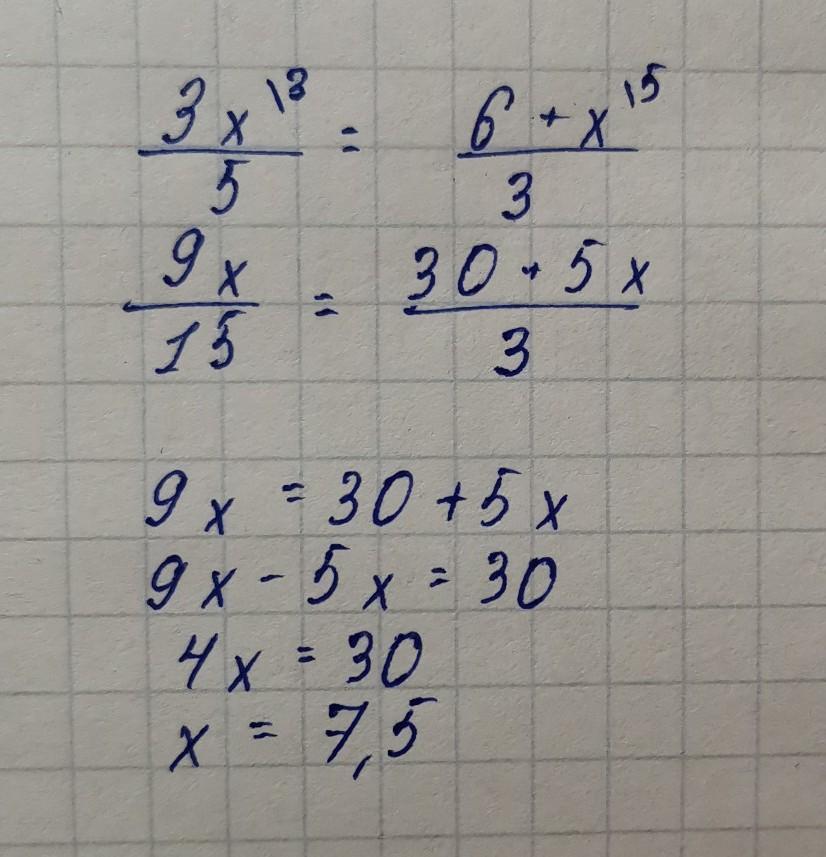 3x\3 / 5 = 6 + x\5 / 3
9x / 15 = 30 + 5x / 3
9x = 30 + 5x
9x - 5x = 30
4x = 30
x = 7,5